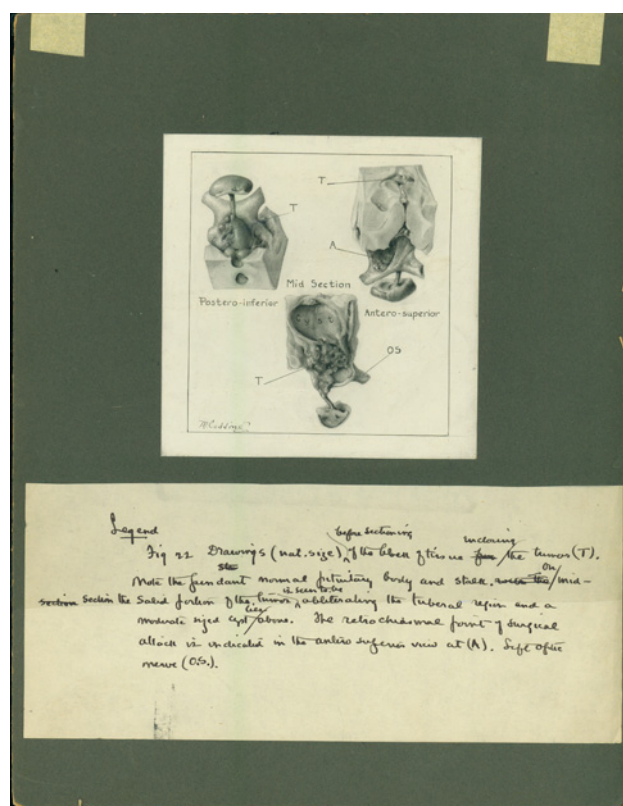 T
T
A
Mid Section
Postero-inferior
Antero-superior
OS
T
Legend
before sectioning
including
Fig 22 Drawings (nat. size) of the block of tissue the tumor (T).
on
Note the pendant normal pituitary body and stalk. mid-
section section the solid portion of the tumor is seen to be obliterating the tuberal region and a
moderate sized cyst lies above. The retrochiasmal point of surgical
attack is indicated in the antero superior view at (A). Left optic
nerve (O.S.).